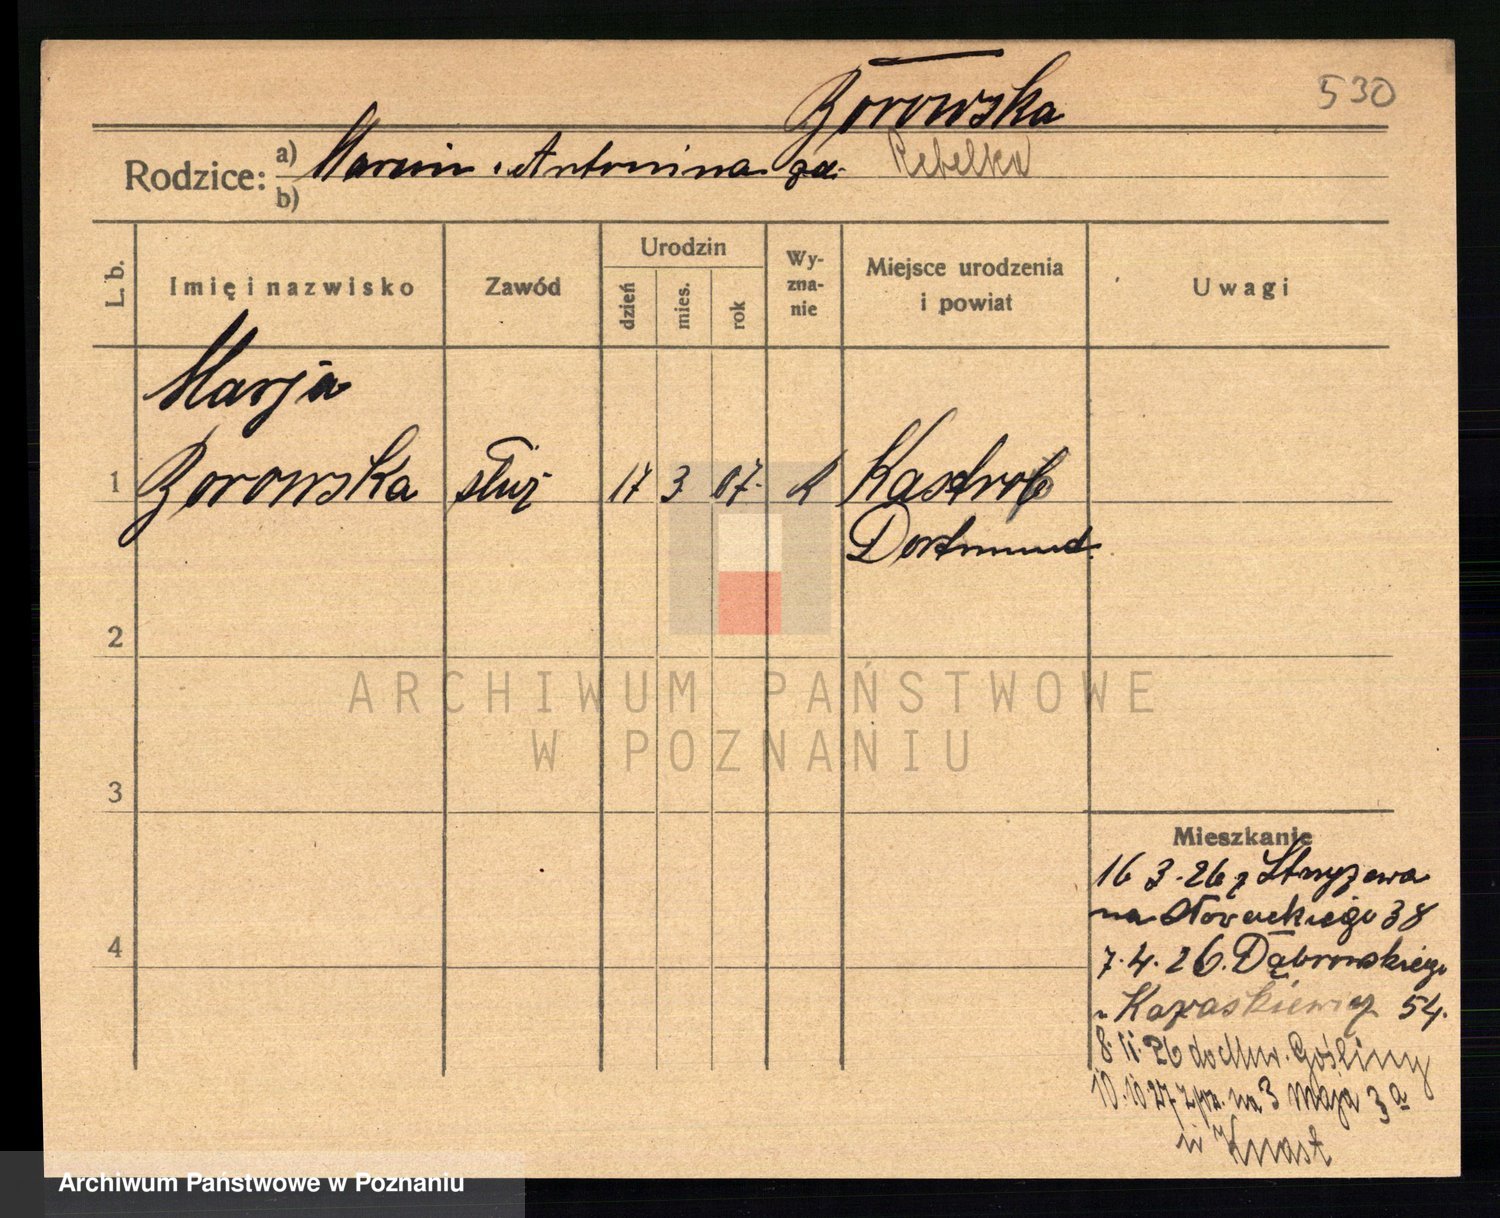 Borowska
530
Rodzice: a) Marcin i Antonina zd. Rebelka
b)
L. b.
Imię i nazwisko
Zawód
Urodzin
dzień
mies.
rok
Wy-
zna-
nie
Miejsce urodzenia
i powiat
Uwagi
Marja
1 Borowska służ 17 3 07. k Kastrob
Dortmund.
2
ARCHIWUM PAŃSTWOWE
W POZNANIU
3
4
Mieszkanie
16 3. 26 z Stryzewa
na Słowackiego 38
7. 4. 26. Dąbrowskiego
54.
8. 11. 26 do Mur. Gośliny
10. 10 27 na 3 Maja 3a
Knast
Archiwum Państwowe w Poznaniu